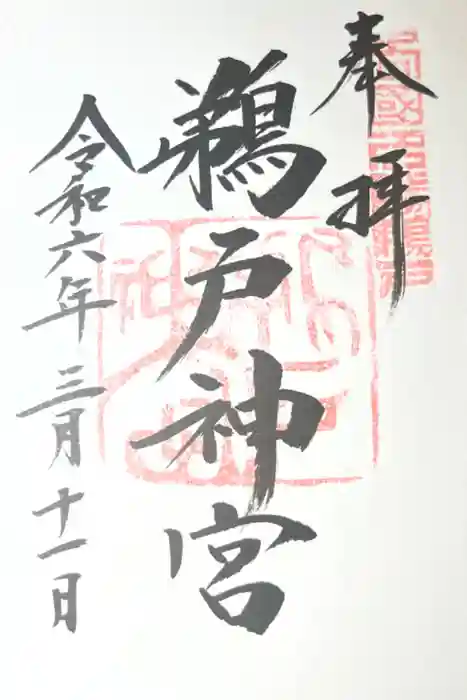 奉拝
鵜戸神宮
令和六年三月十一日